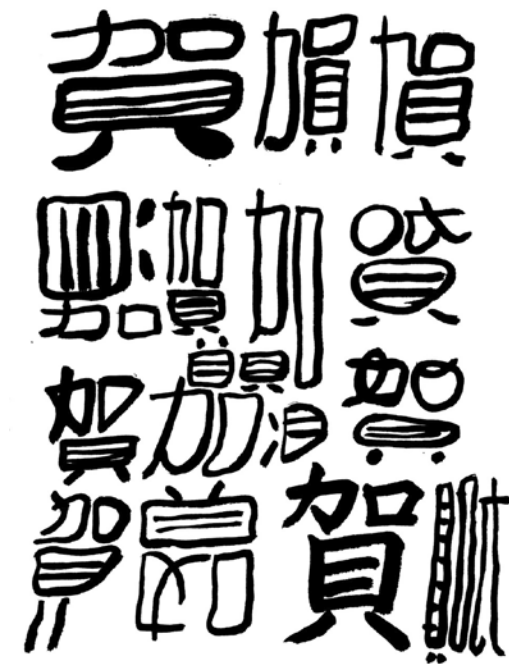 賀賀賀
賀賀賀賀
賀賀賀
賀賀賀賀